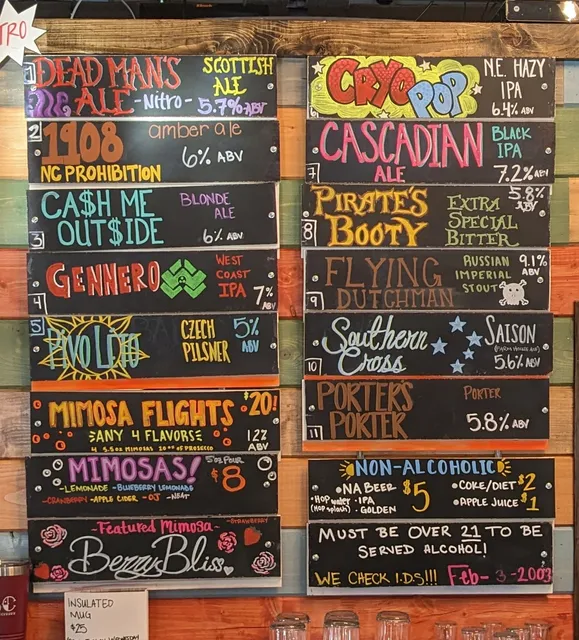 TRO
1
DEAD MAN'S
ALE -Nitro-
SCOTTISH
ALE
5.7% ABV
2
1908
amber ale
6% ABV
NC PROHIBITION
3
CA$H ME
OUT$IDE
BLONDE
ALE
6% ABV
4
GENNERO
WEST
COAST
IPA
7%
ABV
5
PIVO LETO
CZECH
PILSNER
5%
ABV
MIMOSA FLIGHTS $20!
ANY 4 FLAVORS
4 5.5oz MIMOSAS
OF PROSECCO
12%
ABV
MIMOSAS!
5oz POUR
$8
-LEMONADE -BLUEBERRY LEMONADE
-CRANBERRY -APPLE CIDER -OJ -NEAT
-Featured Mimosa-
-STRAWBERRY
Berry Bliss
INSULATED
MUG
$25
CRYO
POP
N.E. HAZY
IPA
6.4% ABV
7
CASCADIAN
ALE
BLACK
IPA
7.2% ABV
8
PIRATE'S
BOOTY
EXTRA
SPECIAL
BITTER
5.8%
ABV
9
FLYING
DUTCHMAN
RUSSIAN
IMPERIAL
STOUT
9.1%
ABV
10
Southern
Cross
SAISON
(FARM HOUSE ALE)
5.6% ABV
11
PORTER'S
PORTER
PORTER
5.8% ABV
NON-ALCOHOLIC
•NA BEER $5
•Hop water •IPA
(Hop splash) •GOLDEN
•COKE/DIET $2
•APPLE JUICE $1
MUST BE OVER 21 TO BE
SERVED ALCOHOL!
WE CHECK I.D.S!!! Feb-3-2003